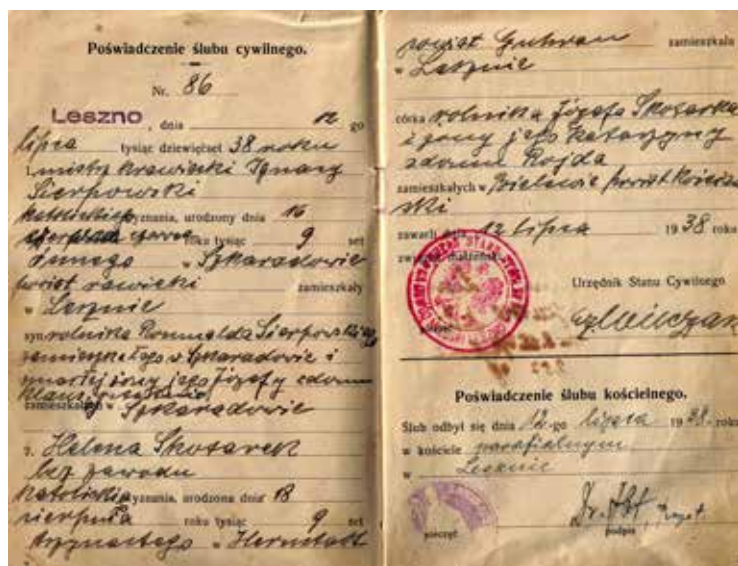 Poświadczenie ślubu cywilnego.
Nr. 86
Leszno, dnia 12 go
lipca tysiąc dziewięćset 38 roku
1. mistrz krawiecki Ignacy
Sierpowski
katolickiego wyznania, urodzony dnia 16
sierpnia roku tysiąc 9 set
w Szkaradowie
powiat rawicki zamieszkały
w Lesznie
syn rolnika Romualda Sierpowskiego
zamieszkałego w Szkaradowie i
zmarłej żony jego Józefy zdomu
zamieszkałych w Szkaradowie
2. Helena Skotarek
bez zawodu
katolickiego wyznania, urodzona dnia 18
sierpnia roku tysiąc 9 set
trzynastego w Hernstadt
powiat Guhrau zamieszkała
w Lesznie
córka rolnika Józefa Skotarka
i żony jego Katarzyny
zdomu Rojda
zamieszkałych w Bielewie powiat Kościań
ski
zawarli dnia 12 lipca 1938 roku
związek małżeński.
Urzędnik Stanu Cywilnego
Poświadczenie ślubu kościelnego.
Ślub odbył się dnia 12-go lipca 1938. roku
w kościele parafialnym
w Lesznie
pieczęć podpis